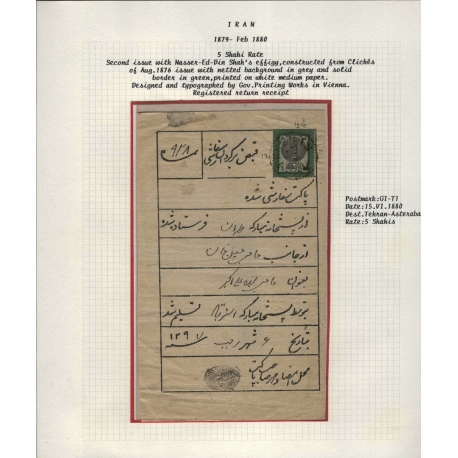 IRAN
1879- Feb 1880
5 Shahi Rate
Second issue with Nasser-Ed-Din Shah's effigy,constructed from Clichès
of Aug.1876 issue with netted background in grey and solid
border in green,printed on white medium paper.
Designed and typographed by Gov.Printing Works in Vienna.
Registered return receipt
قبض برگرد سفارشی
نمره ۹۲۸
پاکت سفارشی شده
از پستخانه مبارکه طهران فرستاده شده
از جانب حاجی حسین خان
بعنوان حاجی
توسط پستخانه مبارکه استرآباد تسلیم شد
بتاریخ ۶ شهر رجب ۱۲۹۷
محل امضا و مهر صاحب پاکت
Postmark:GI-T1
Date:15.VI.1880
Dest.Tehran-Asteraba
Rate:5 Shahis